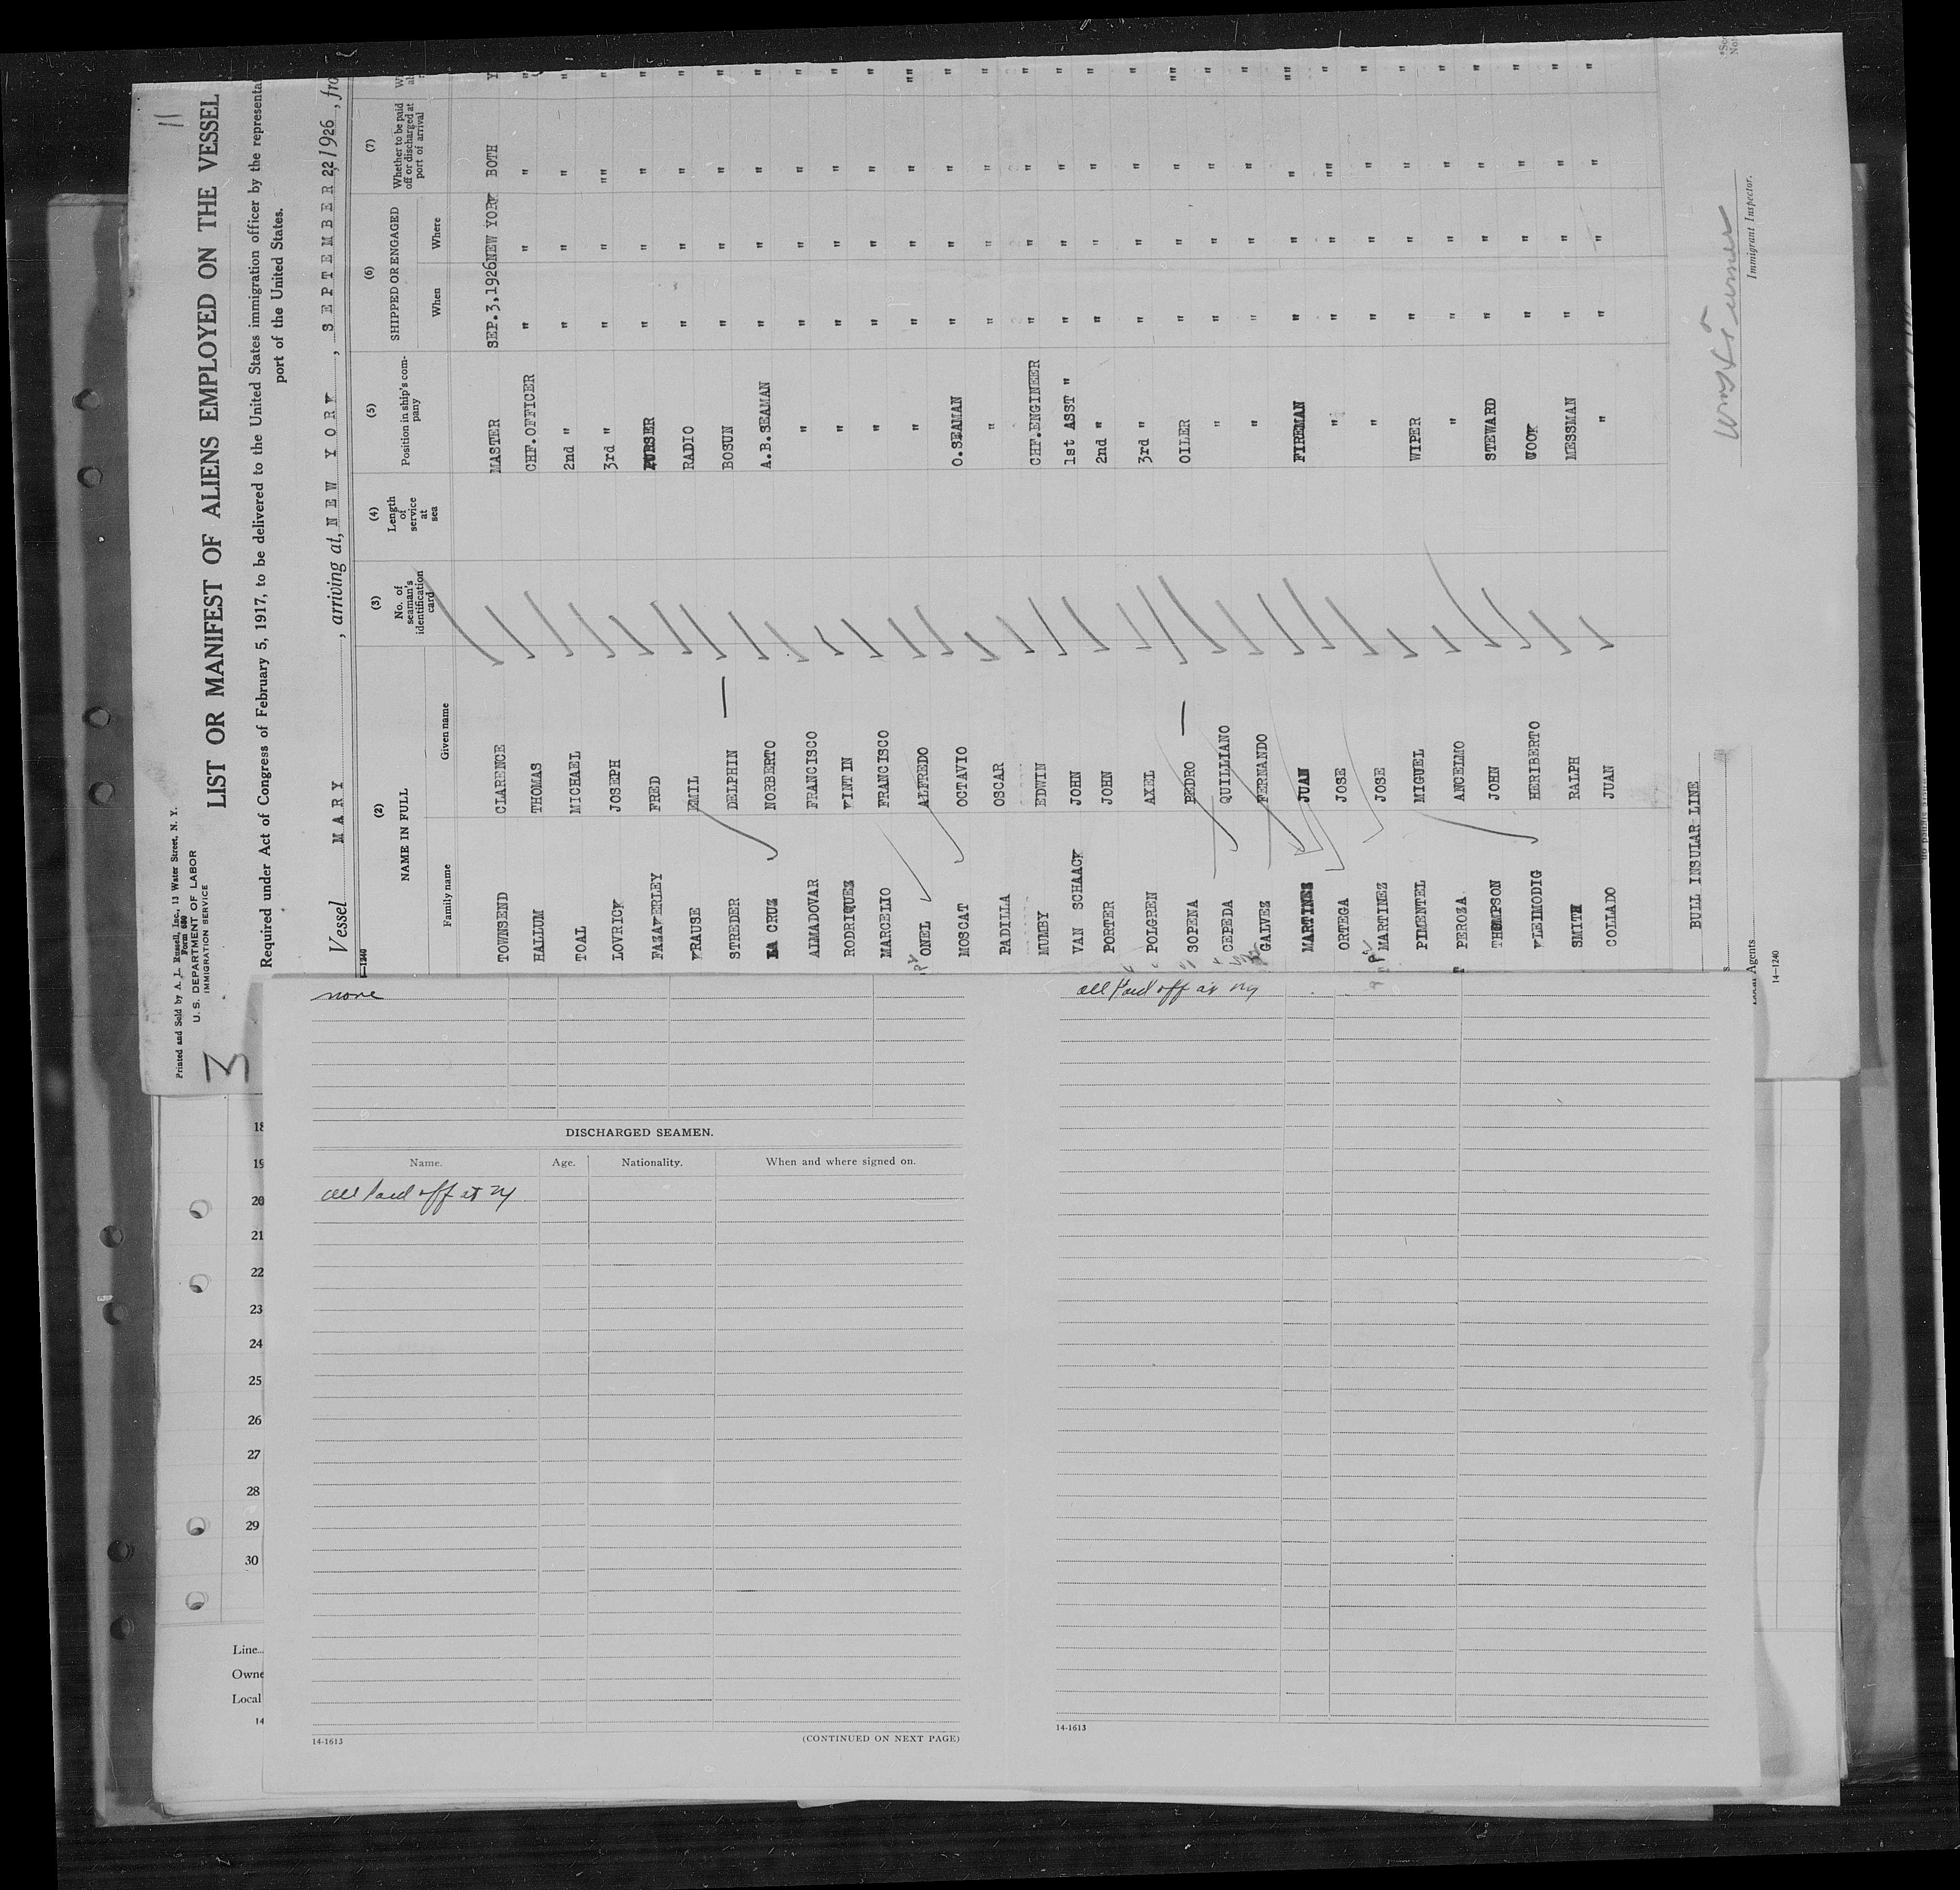 11
Printed and Sold by A. L. Russell, Inc., 13 Water Street, N. Y.
Form 680
U. S. DEPARTMENT OF LABOR
IMMIGRATION SERVICE
3
LIST OR MANIFEST OF ALIENS EMPLOYED ON THE VESSEL
Required under Act of Congress of February 5, 1917, to be delivered to the United States immigration officer by the representa
port of the United States.
Vessel MARY, arriving at, NEW YORK, SEPTEMBER 22, 1926, fro
(2) (3) (4) (5) (6) (7)
NAME IN FULL No. of seaman's identification card Length of service at sea Position in ship's company SHIPPED OR ENGAGED Whether to be paid off or discharged at port of arrival
Family name Given name When Where
TOWNSEND CLARENCE MASTER SEP.3,1926 NEW YORK BOTH Y
HALLUM THOMAS CHF.OFFICER " " " "
TOAL MICHAEL 2nd " " " " "
LOVRICK JOSEPH 3rd " " " "" "
FAZAKERLEY FRED PURSER " " " "
KRAUSE EMIL RADIO " " " "
STREDER DELPHIN — BOSUN " " " "
LA CRUZ NORBERTO A.B.SEAMAN " " " "
ALMADOVAR FRANCISCO " " " " "
RODRIQUEZ KINTIN " " " " "
MARCELIO FRANCISCO " " " " "
ONEL ALFREDO " " " " ""
MOSCAT OCTAVIO O.SEAMAN " " " "
PADILLA OSCAR " " " " "
MUMBY EDWIN CHF.ENGINEER " " " "
VAN SCHAACK JOHN 1st ASST " " " " "
PORTER JOHN 2nd " " " " "
POLGREN AXEL 3rd " " " " "
SOPENA PEDRO — OILER " " " ""
CEPEDA QUILLIANO " " " " "
GALVEZ FERNANDO " " " " "
MARTINEZ JUAN FIREMAN " " " ""
ORTEGA JOSE " " " "" "
MARTINEZ JOSE " " " " "
PIMENTEL MIGUEL WIPER " " " "
PEROZA ANCELMO " " " " "
THOMPSON JOHN STEWARD " " " "
KLEIMODIG HERIBERTO COOK " " " "
SMITH RALPH MESSMAN " " " "
COLLADO JUAN " " " " "
BULL INSULAR LINE
Agents
14—1240
Immigrant Inspector.
none
DISCHARGED SEAMEN.
Name. Age. Nationality. When and where signed on.
all Paid off at NY
14-1613
(CONTINUED ON NEXT PAGE)
all Paid off at NY
14-1613
18
19
20
21
22
23
24
25
26
27
28
29
30
Line
Owne
Local
14